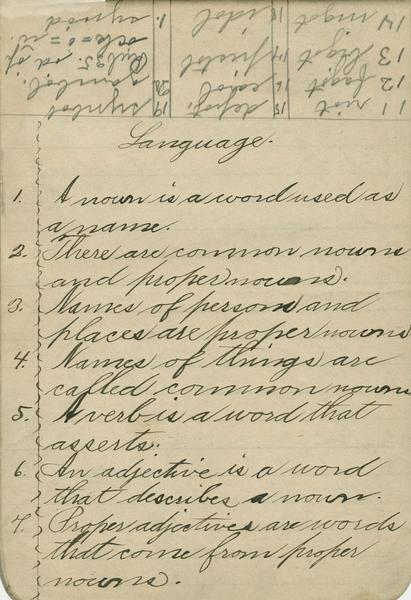 Language.
1. A noun is a word used as
a name.
2. There are common nouns
and proper nouns.
3. Names of persons and
places are proper nouns
4. Names of things are
called common nouns
5. A verb is a word that
asserts.
6. An adjective is a word
that describes a noun.
7. Proper adjectives are words
that come from proper
nouns.
11 riot
12 fagot
13 bigot
14 ingot
15 depot.
16
17 pistol
18 idol
19 symbol
20 gambol.
Rule 25. od of
1. synod